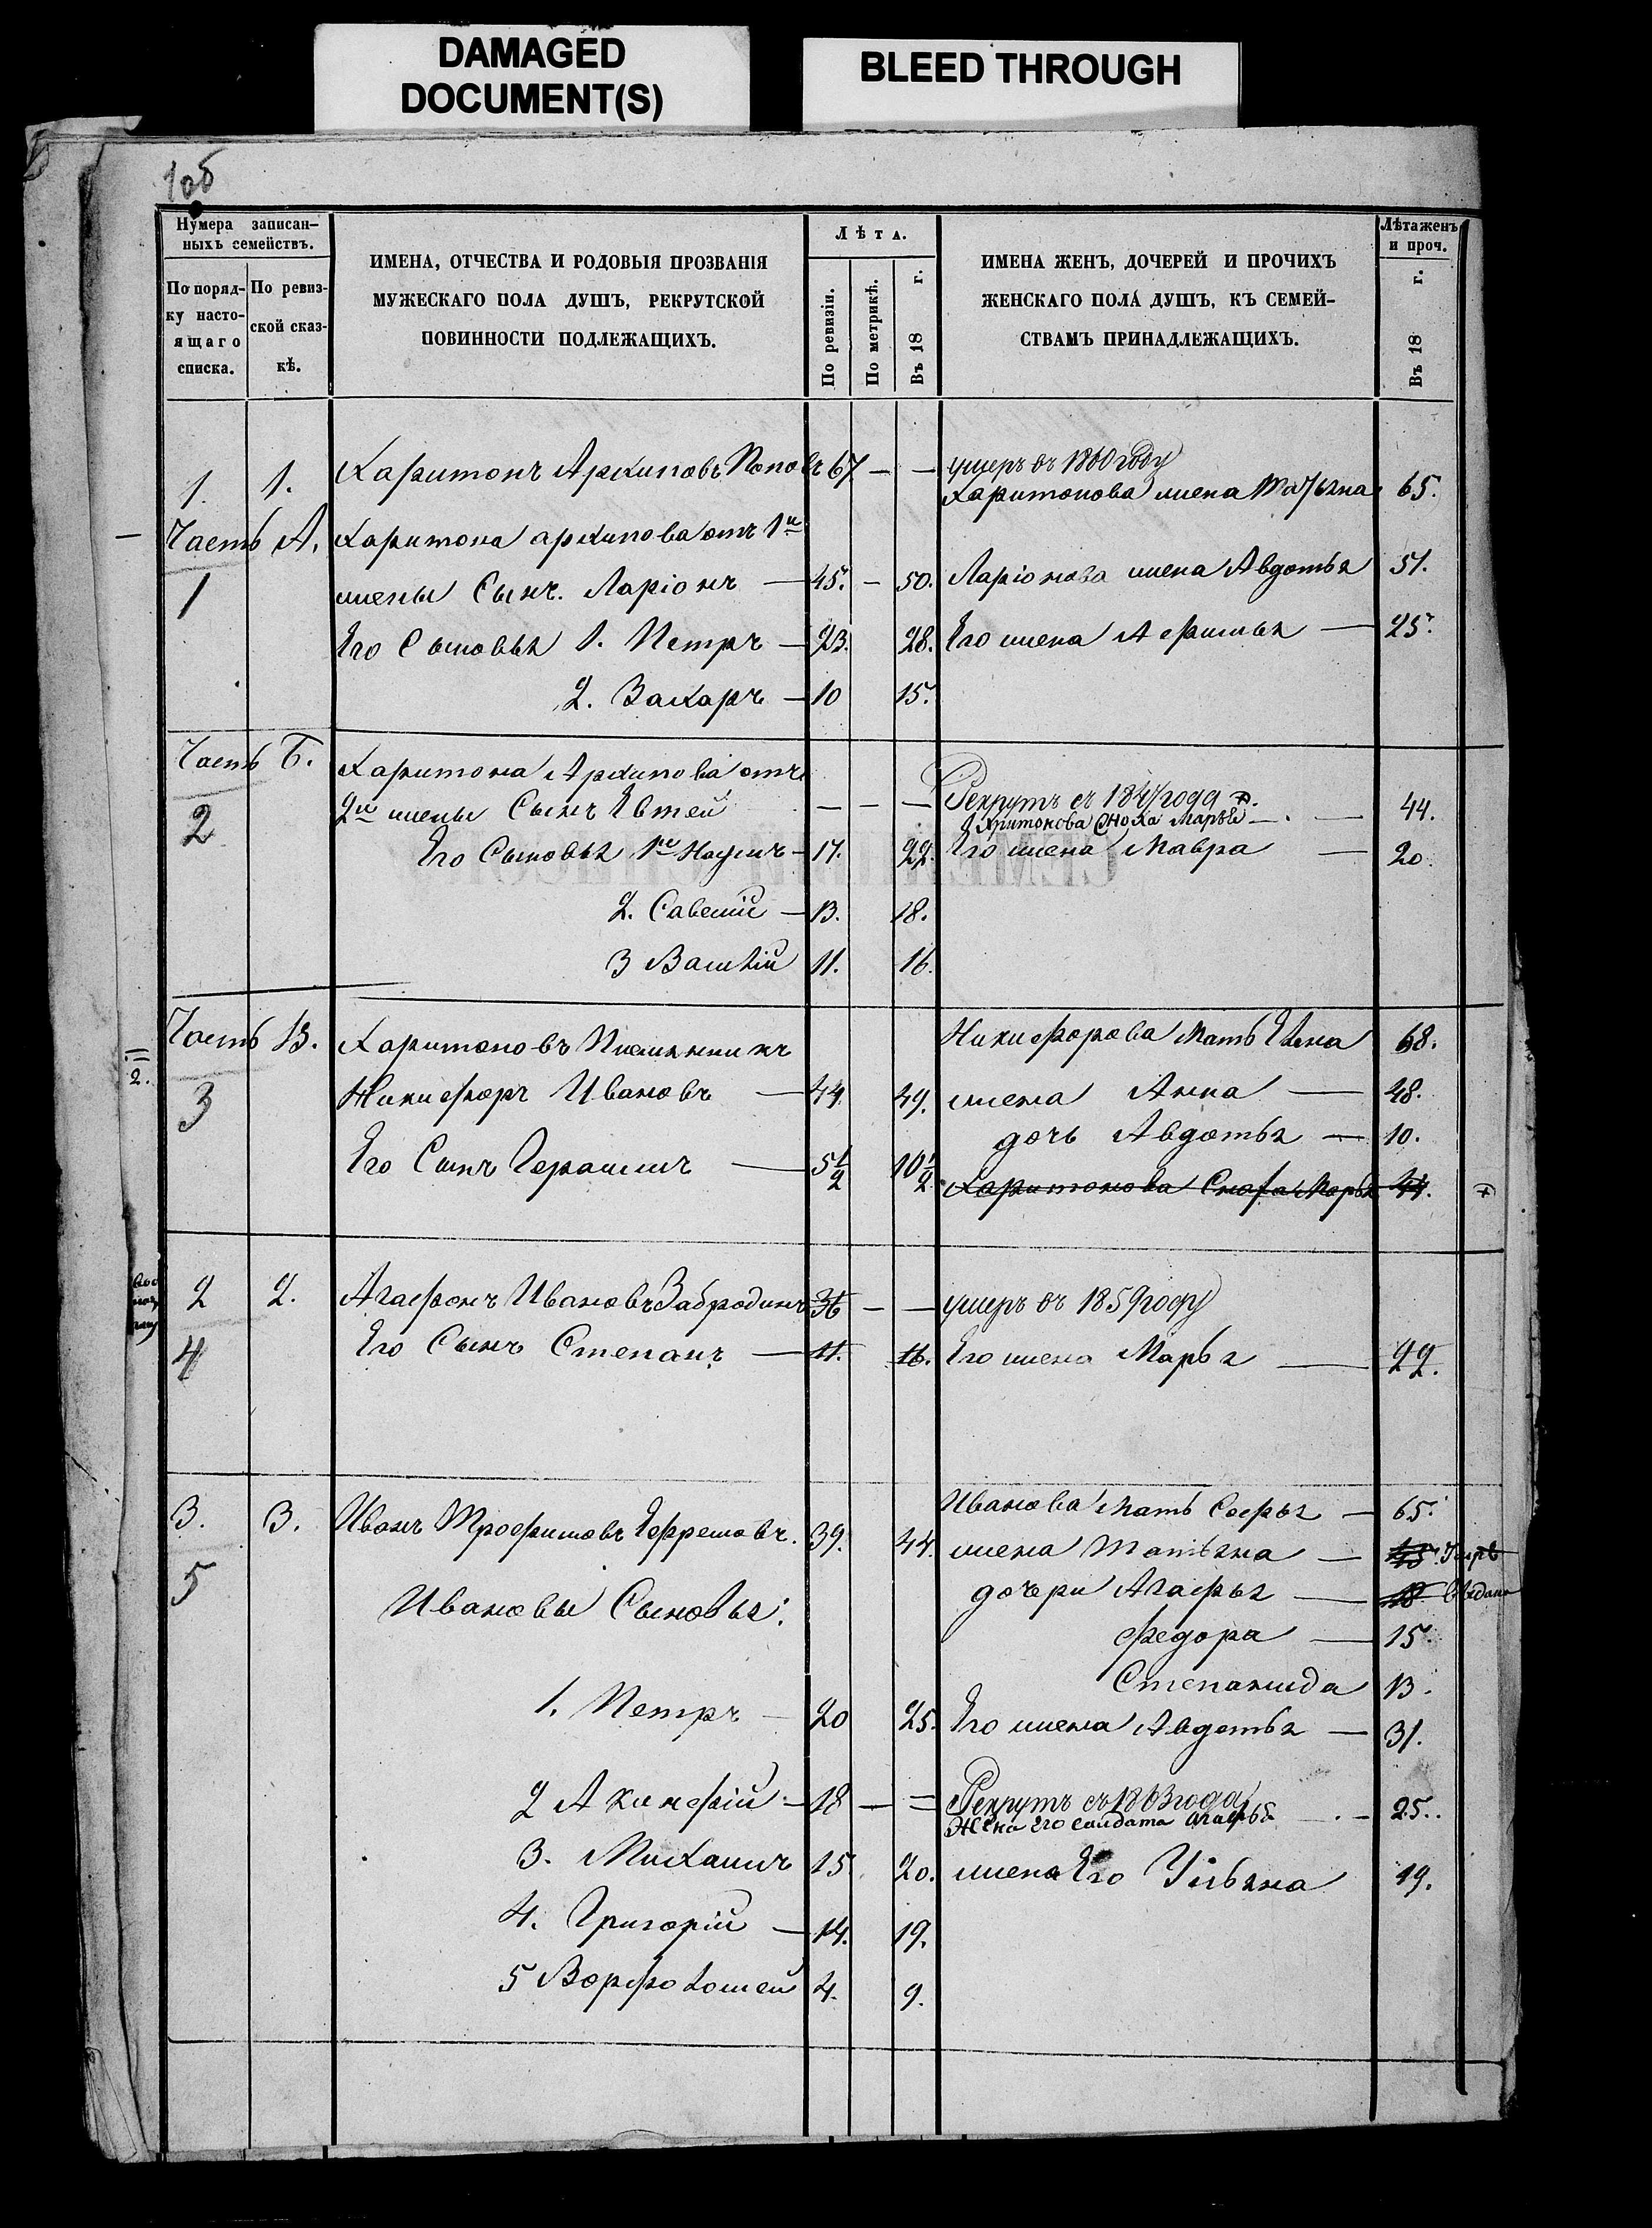 DAMAGED
DOCUMENT(S)
BLEED THROUGH
106
Нумера записан-
ныхъ семействъ.
По поряд-
ку насто-
ящаго
списка.
По ревиз-
ской сказ-
кѣ.
ИМЕНА, ОТЧЕСТВА И РОДОВЫЯ ПРОЗВАНІЯ
МУЖЕСКАГО ПОЛА ДУШЪ, РЕКРУТСКОЙ
ПОВИННОСТИ ПОДЛЕЖАЩИХЪ.
Лѣта.
По ревизіи.
По метрикѣ.
Въ 18 г.
ИМЕНА ЖЕНЪ, ДОЧЕРЕЙ И ПРОЧИХЪ
ЖЕНСКАГО ПОЛА ДУШЪ, КЪ СЕМЕЙ-
СТВАМЪ ПРИНАДЛЕЖАЩИХЪ.
Лѣта женъ
и проч.
Въ 18 г.
1. 1. Харитонъ Архиповъ Поповъ 67 — — умеръ въ 1860 году
Харитонова жена 65.
Часть А. Харитона архипова отъ 1й
1 жены Сынъ Ларіонъ — 45. — 50. Ларіонова жена Авдотья 51.
Его Сыновья 1. Петръ — 23. 28. Его жена Афимья — 25.
2. Захаръ — 10 15.
Часть Б. Харитона Архипова отъ
2 2й жены Сынъ Евтей — — — Рекрутъ съ года
Харитонова сноха Марья — 44.
Его Сыновья 1й Наумъ — 17. 22. Его жена Мавра — 20.
2. Савелій — 13. 18.
3 Василій 11. 16.
Часть В. Харитоновъ Племянникъ Никифорова Мать Елена 68.
2.
3 Никифоръ Ивановъ — 44 49. жена Анна — 48.
дочь Авдотья — 10.
Его Сынъ Герасимъ — 5½ 10½ Харитонова Сноха Марья 44.
2 2. Агафонъ Ивановъ Забродинъ 36 — — умеръ въ 1859 году
4 Его Сынъ Степанъ — 11. 16. Его жена Марья — 22.
3. 3. Иванъ Трофимовъ Ефремовъ. 39. 44. Иванова Мать Софья — 65.
5 жена Татьяна — 45 Умре
Ивановы Сыновья: дочери Агафья — 18 Выдана
Федора — 15
Степанида 13.
1. Петръ — 20 25. Его жена Авдотья — 31.
2 Акинфій — 18 — = Рекрутъ съ 1863 года
Жена его солдатка Агафья — 25.
3. Михаилъ 15 20. жена Его Ульяна 19.
4. Григорій — 14. 19.
5 Ворфоломей 4. 9.